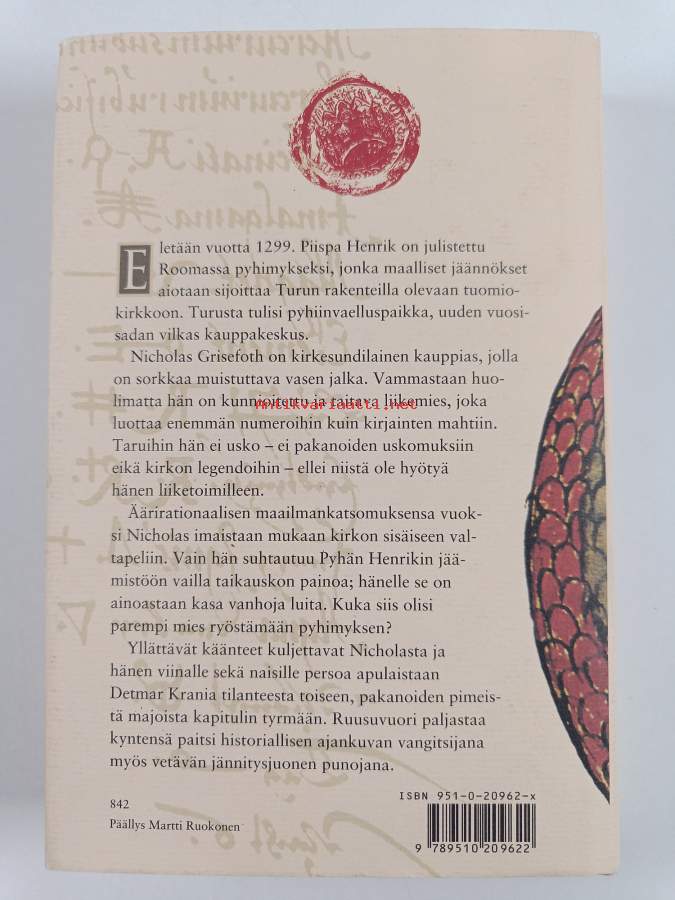 Eletään vuotta 1299. Piispa Henrik on julistettu
Roomassa pyhimykseksi, jonka maalliset jäännökset
aiotaan sijoittaa Turun rakenteilla olevaan tuomio-
kirkkoon. Turusta tulisi pyhiinvaelluspaikka, uuden vuosi-
sadan vilkas kauppakeskus.
Nicholas Grisefoth on kirkesundilainen kauppias, jolla
on sorkkaa muistuttava vasen jalka. Vammastaan huo-
limatta hän on kunnioitettu ja taitava liikemies, joka
Antikvariaatti.net
luottaa enemmän numeroihin kuin kirjainten mahtiin.
Taruihin hän ei usko – ei pakanoiden uskomuksiin
eikä kirkon legendoihin – ellei niistä ole hyötyä
hänen liiketoimilleen.
Äärirationaalisen maailmankatsomuksensa vuok-
si Nicholas imaistaan mukaan kirkon sisäiseen val-
tapeliin. Vain hän suhtautuu Pyhän Henrikin jää-
mistöön vailla taikauskon painoa; hänelle se on
ainoastaan kasa vanhoja luita. Kuka siis olisi
parempi mies ryöstämään pyhimyksen?
Yllättävät käänteet kuljettavat Nicholasta ja
hänen viinalle sekä naisille persoa apulaistaan
Detmar Krania tilanteesta toiseen, pakanoiden pimeis-
tä majoista kapitulin tyrmään. Ruusuvuori paljastaa
kyntensä paitsi historiallisen ajankuvan vangitsijana
myös vetävän jännitysjuonen punojana.
842
Päällys Martti Ruokonen
ISBN 951-0-20962-x
9 789510 209622